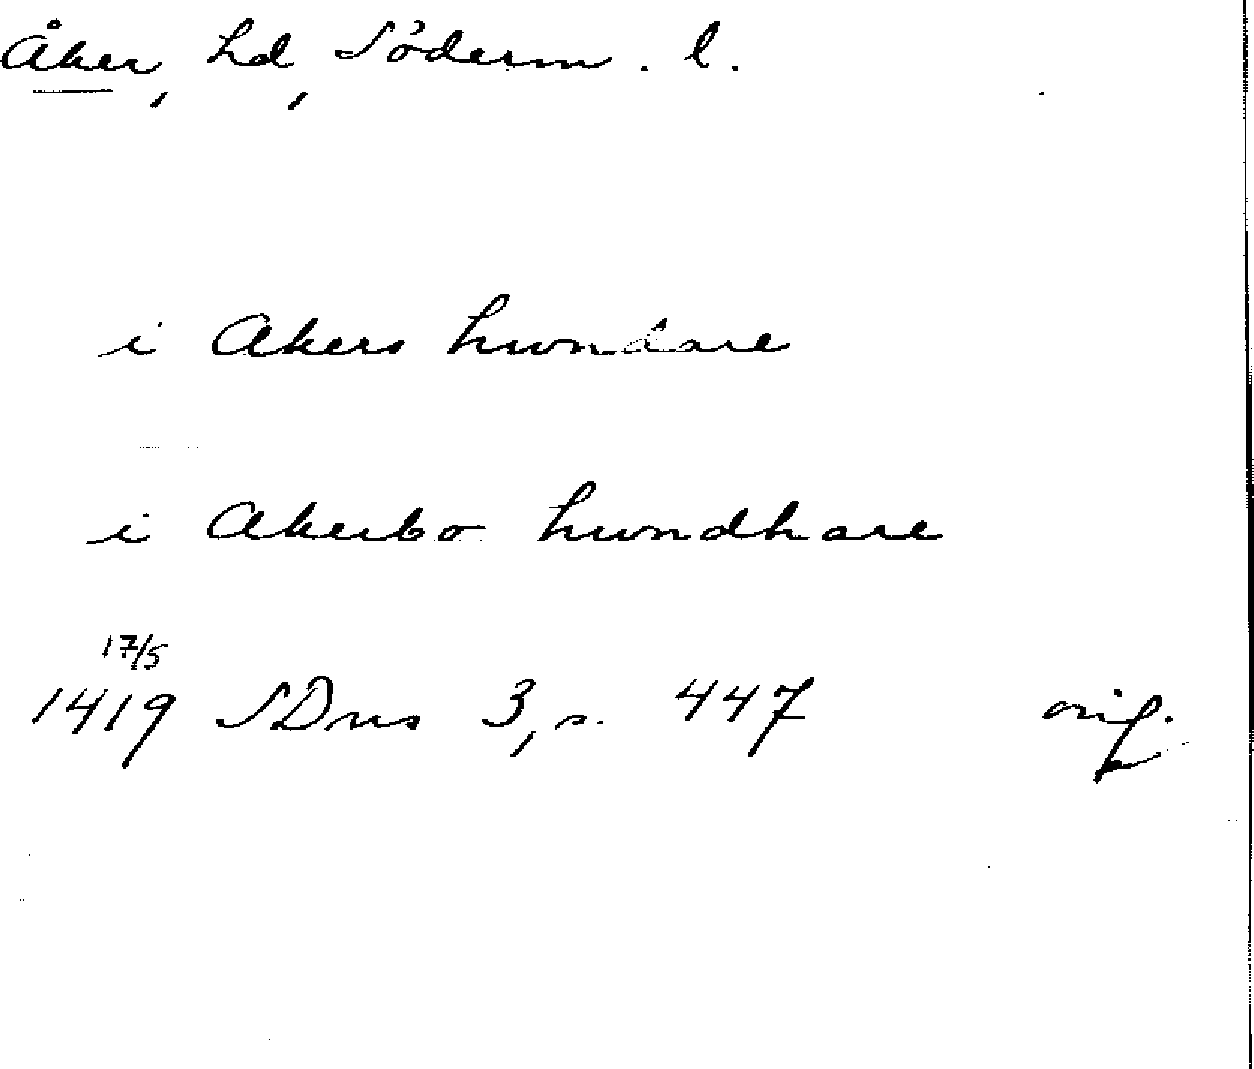 Åker, hd, Söderm. l.
i Akers hundare
i Akerbo hundhare
17/5
1419 SDns 3, s. 447 orig.